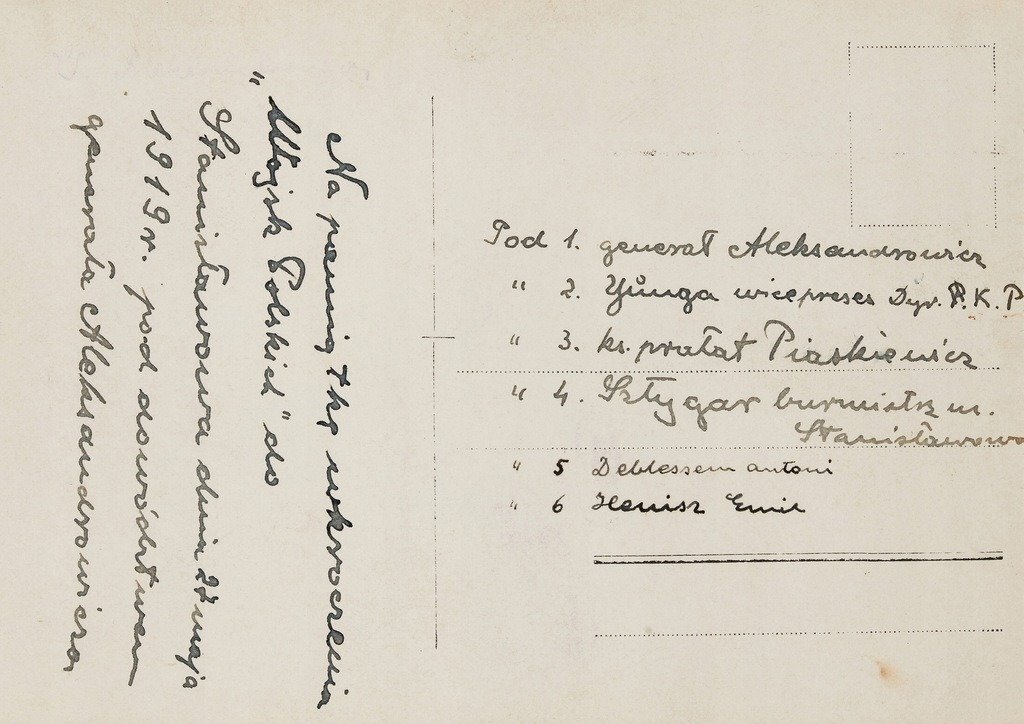 Na pamiątkę wkroczenia
"Wojsk Polskich" do
Stanisławowa dnia 27 maja
1919 r. pod dowództwem
generała Aleksandrowicza
Pod 1. generał Aleksandrowicz
" 2. wiceprezes Dyr. P. K. P
" 3. ks. prałat Piaskiewicz
" 4. Sztygar burmistrz m.
Stanisławowa
" 5 Deblessem antoni
" 6 Henisz Emil